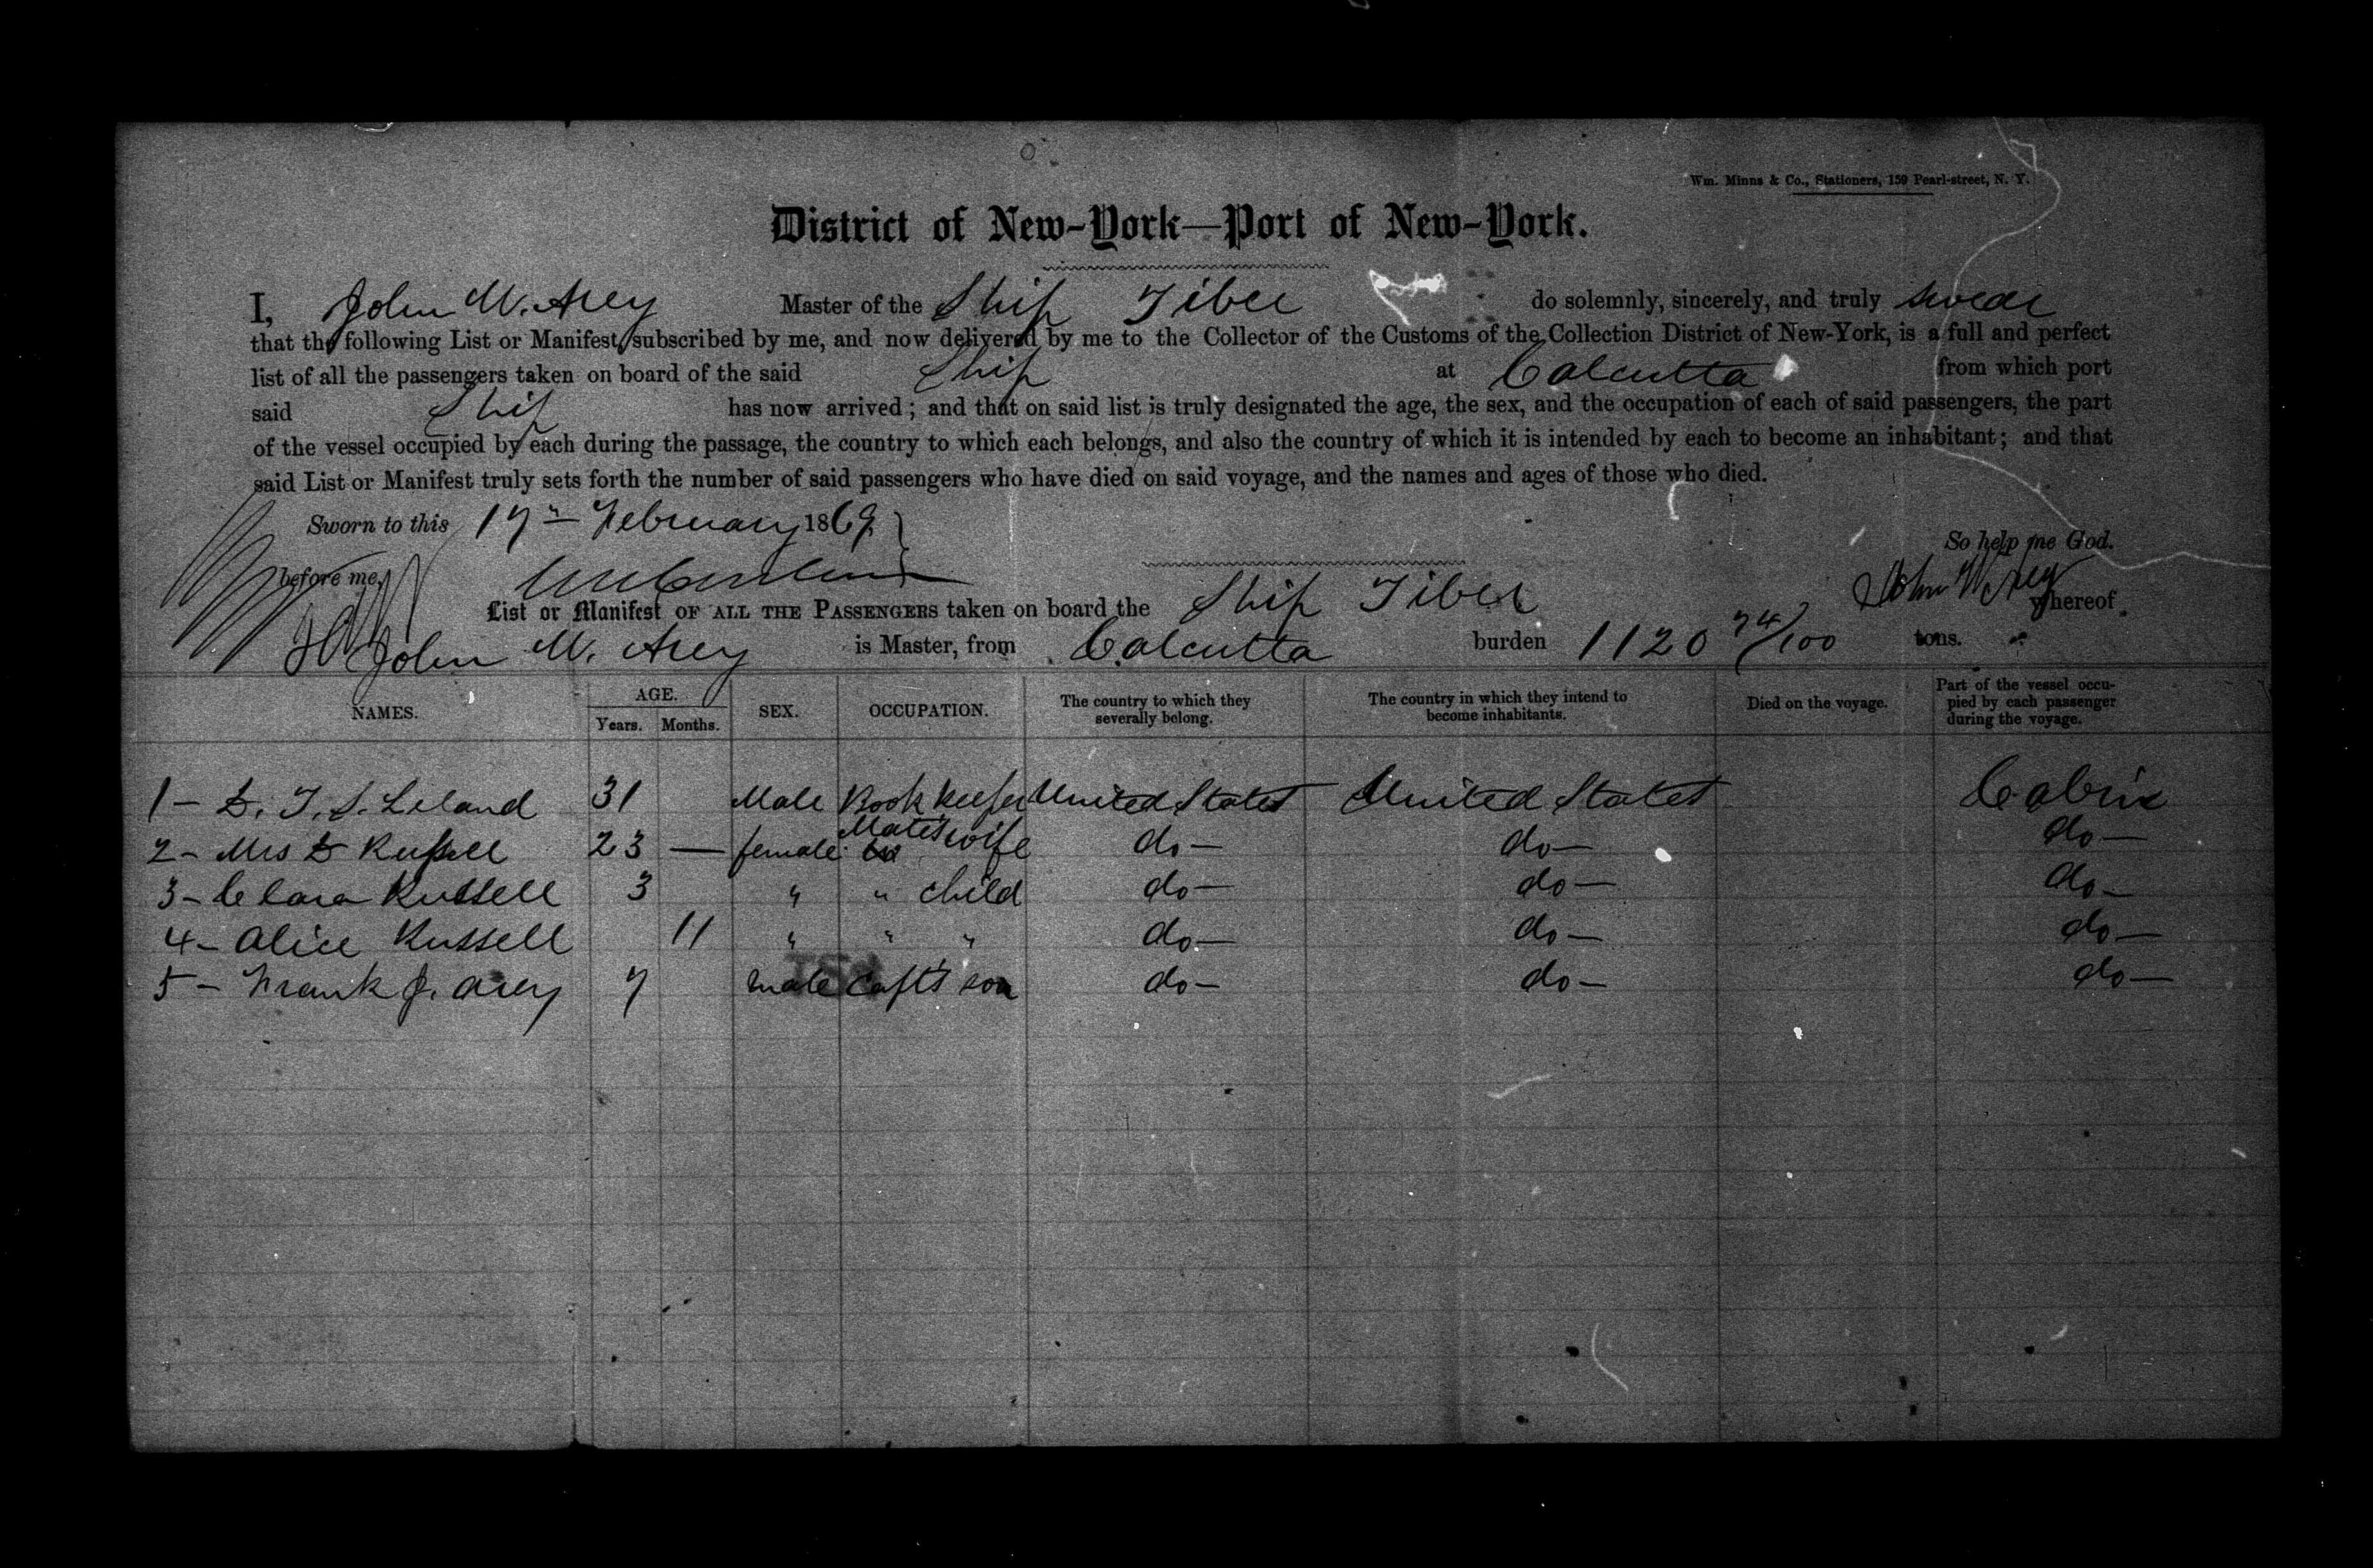 Wm. Minns & Co., Stationers, 159 Pearl-street, N. Y.
District of New-York—Port of New-York.
I, John W. Arey Master of the Ship Tiber do solemnly, sincerely, and truly swear
that the following List or Manifest, subscribed by me, and now delivered by me to the Collector of the Customs of the Collection District of New-York, is a full and perfect
list of all the passengers taken on board of the said Ship at Calcutta from which port
said Ship has now arrived; and that on said list is truly designated the age, the sex, and the occupation of each of said passengers, the part
of the vessel occupied by each during the passage, the country to which each belongs, and also the country of which it is intended by each to become an inhabitant; and that
said List or Manifest truly sets forth the number of said passengers who have died on said voyage, and the names and ages of those who died.
Sworn to this 17" February 1869
So help me God.
before me,
John W. Arey
List or Manifest OF ALL THE PASSENGERS taken on board the Ship Tiber whereof
John W. Arey is Master, from Calcutta burden 1120 74/100 tons.
NAMES. AGE. Years. Months. SEX. OCCUPATION. The country to which they severally belong. The country in which they intend to become inhabitants. Died on the voyage. Part of the vessel occupied by each passenger during the voyage.
1 - D. T. S. Leland 31 Male Book keeper United States United States Cabin
2 - Mrs D Russell 23 — female Mate's wife do — do — do —
3 - Clara Russell 3 " " child do — do — do —
4 - Alice Russell 11 " " " do — do — do —
5 - Frank J. Arey 7 male Capt's son do — do — do —